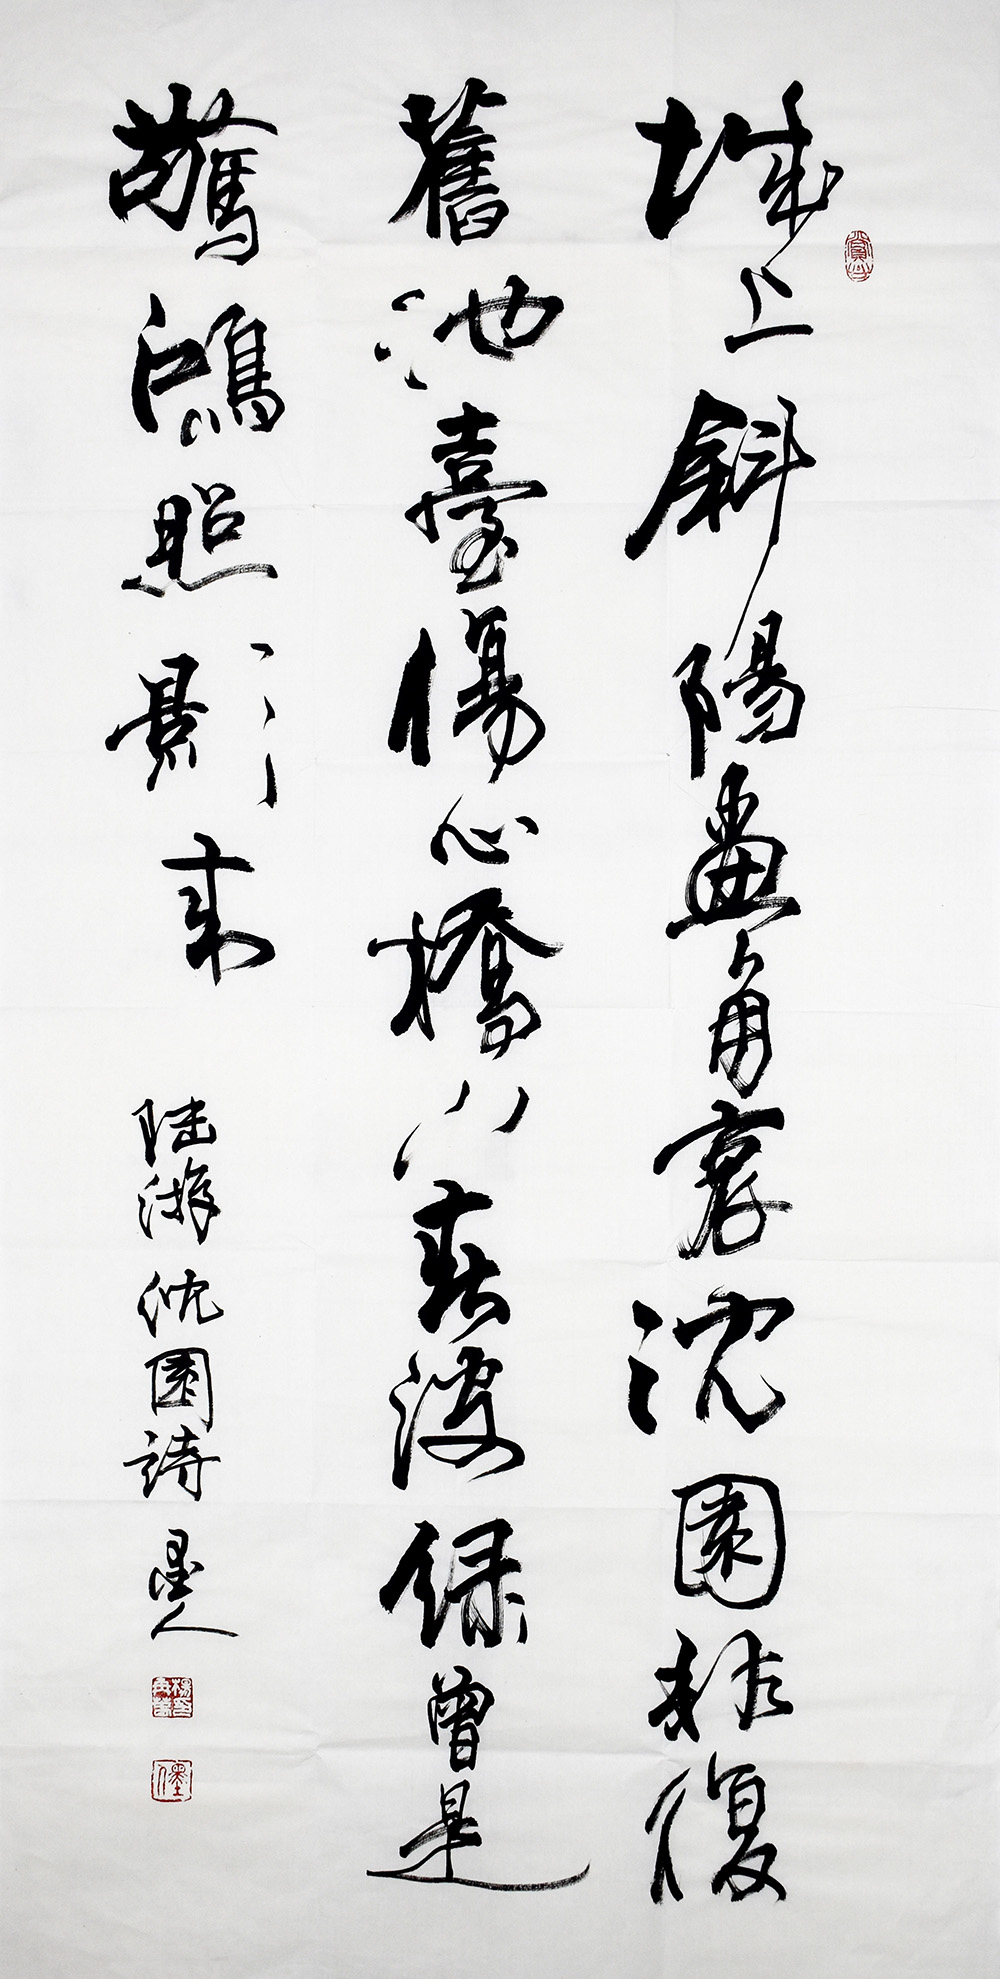 城上斜陽畫角哀沈園非復
舊池臺傷心橋下春波綠曾是
驚鴻照影來
陸游沈園詩 墨人